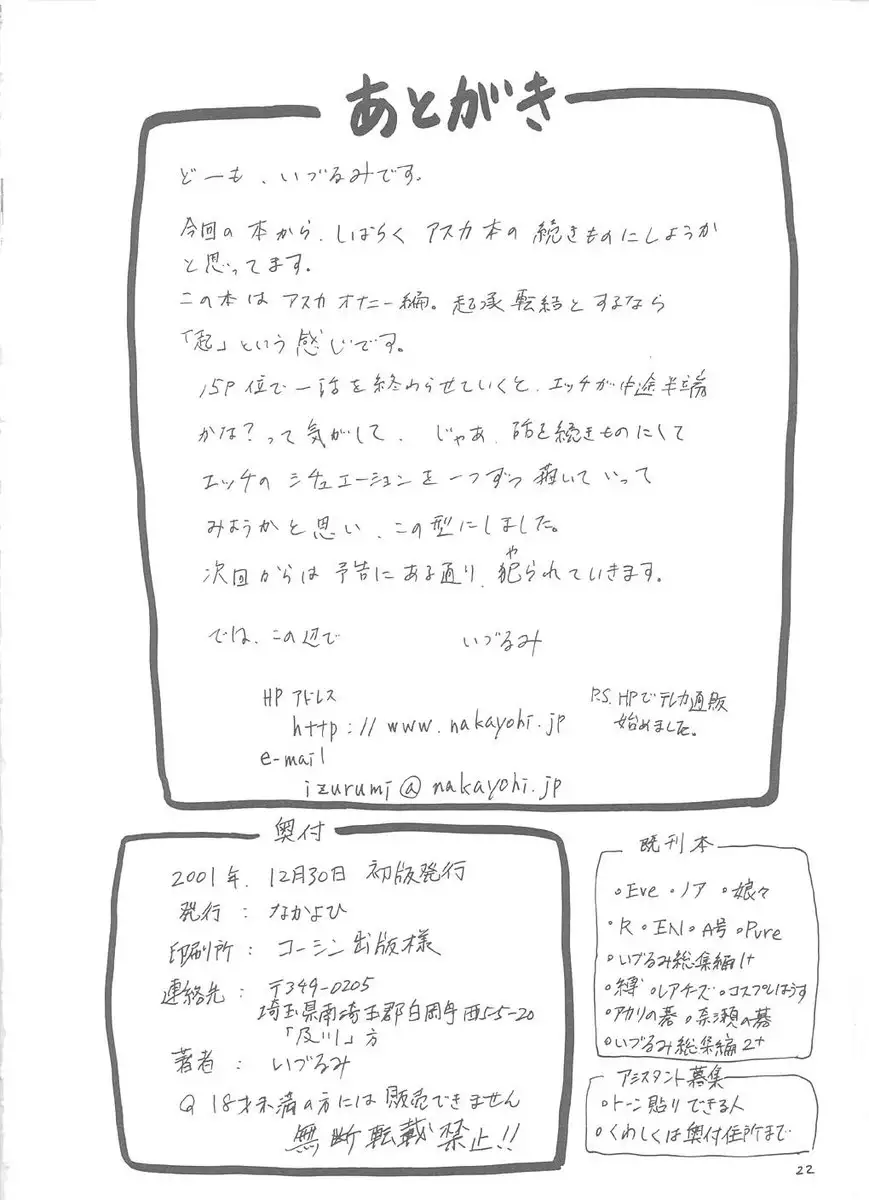 あとがき
どーも、いづるみです。
今回の本から、しばらくアスカ本の続きものにしようか
と思ってます。
この本はアスカオナニー編。起承転結とするなら
「起」という感じです。
15P位で一話を終わらせていくと、エッチが中途半端
かな?って気がして、じゃあ、話を続きものにして
エッチのシチュエーションを一つずつ描いていって
みようかと思い、この型にしました。
や
次回からは予告にある通り、犯られていきます。
では、この辺で いづるみ
HPアドレス
http://www.nakayohi.jp
e-mail
izurumi@nakayohi.jp
P.S. HPでテレカ通販
始めました。
奥付
2001年、12月30日 初版発行
発行 : なかよひ
印刷所 : コーシン出版様
連絡先 : 〒349-0205
埼玉県南埼玉郡白岡町西5-5-20
「及川」方
著者 : いづるみ
18才未満の方には販売できません
無断転載禁止!!
既刊本
・Eve ・ノア ・娘々
・R ・EN ・A号 ・Pure
・いづるみ総集編1+
・縛 ・レアチーズ ・コスプレはうす
・アカリの碁 ・奈瀬の碁
・いづるみ総集編2+
アシスタント募集
・トーン貼りできる人
・くわしくは奥付住所まで
22